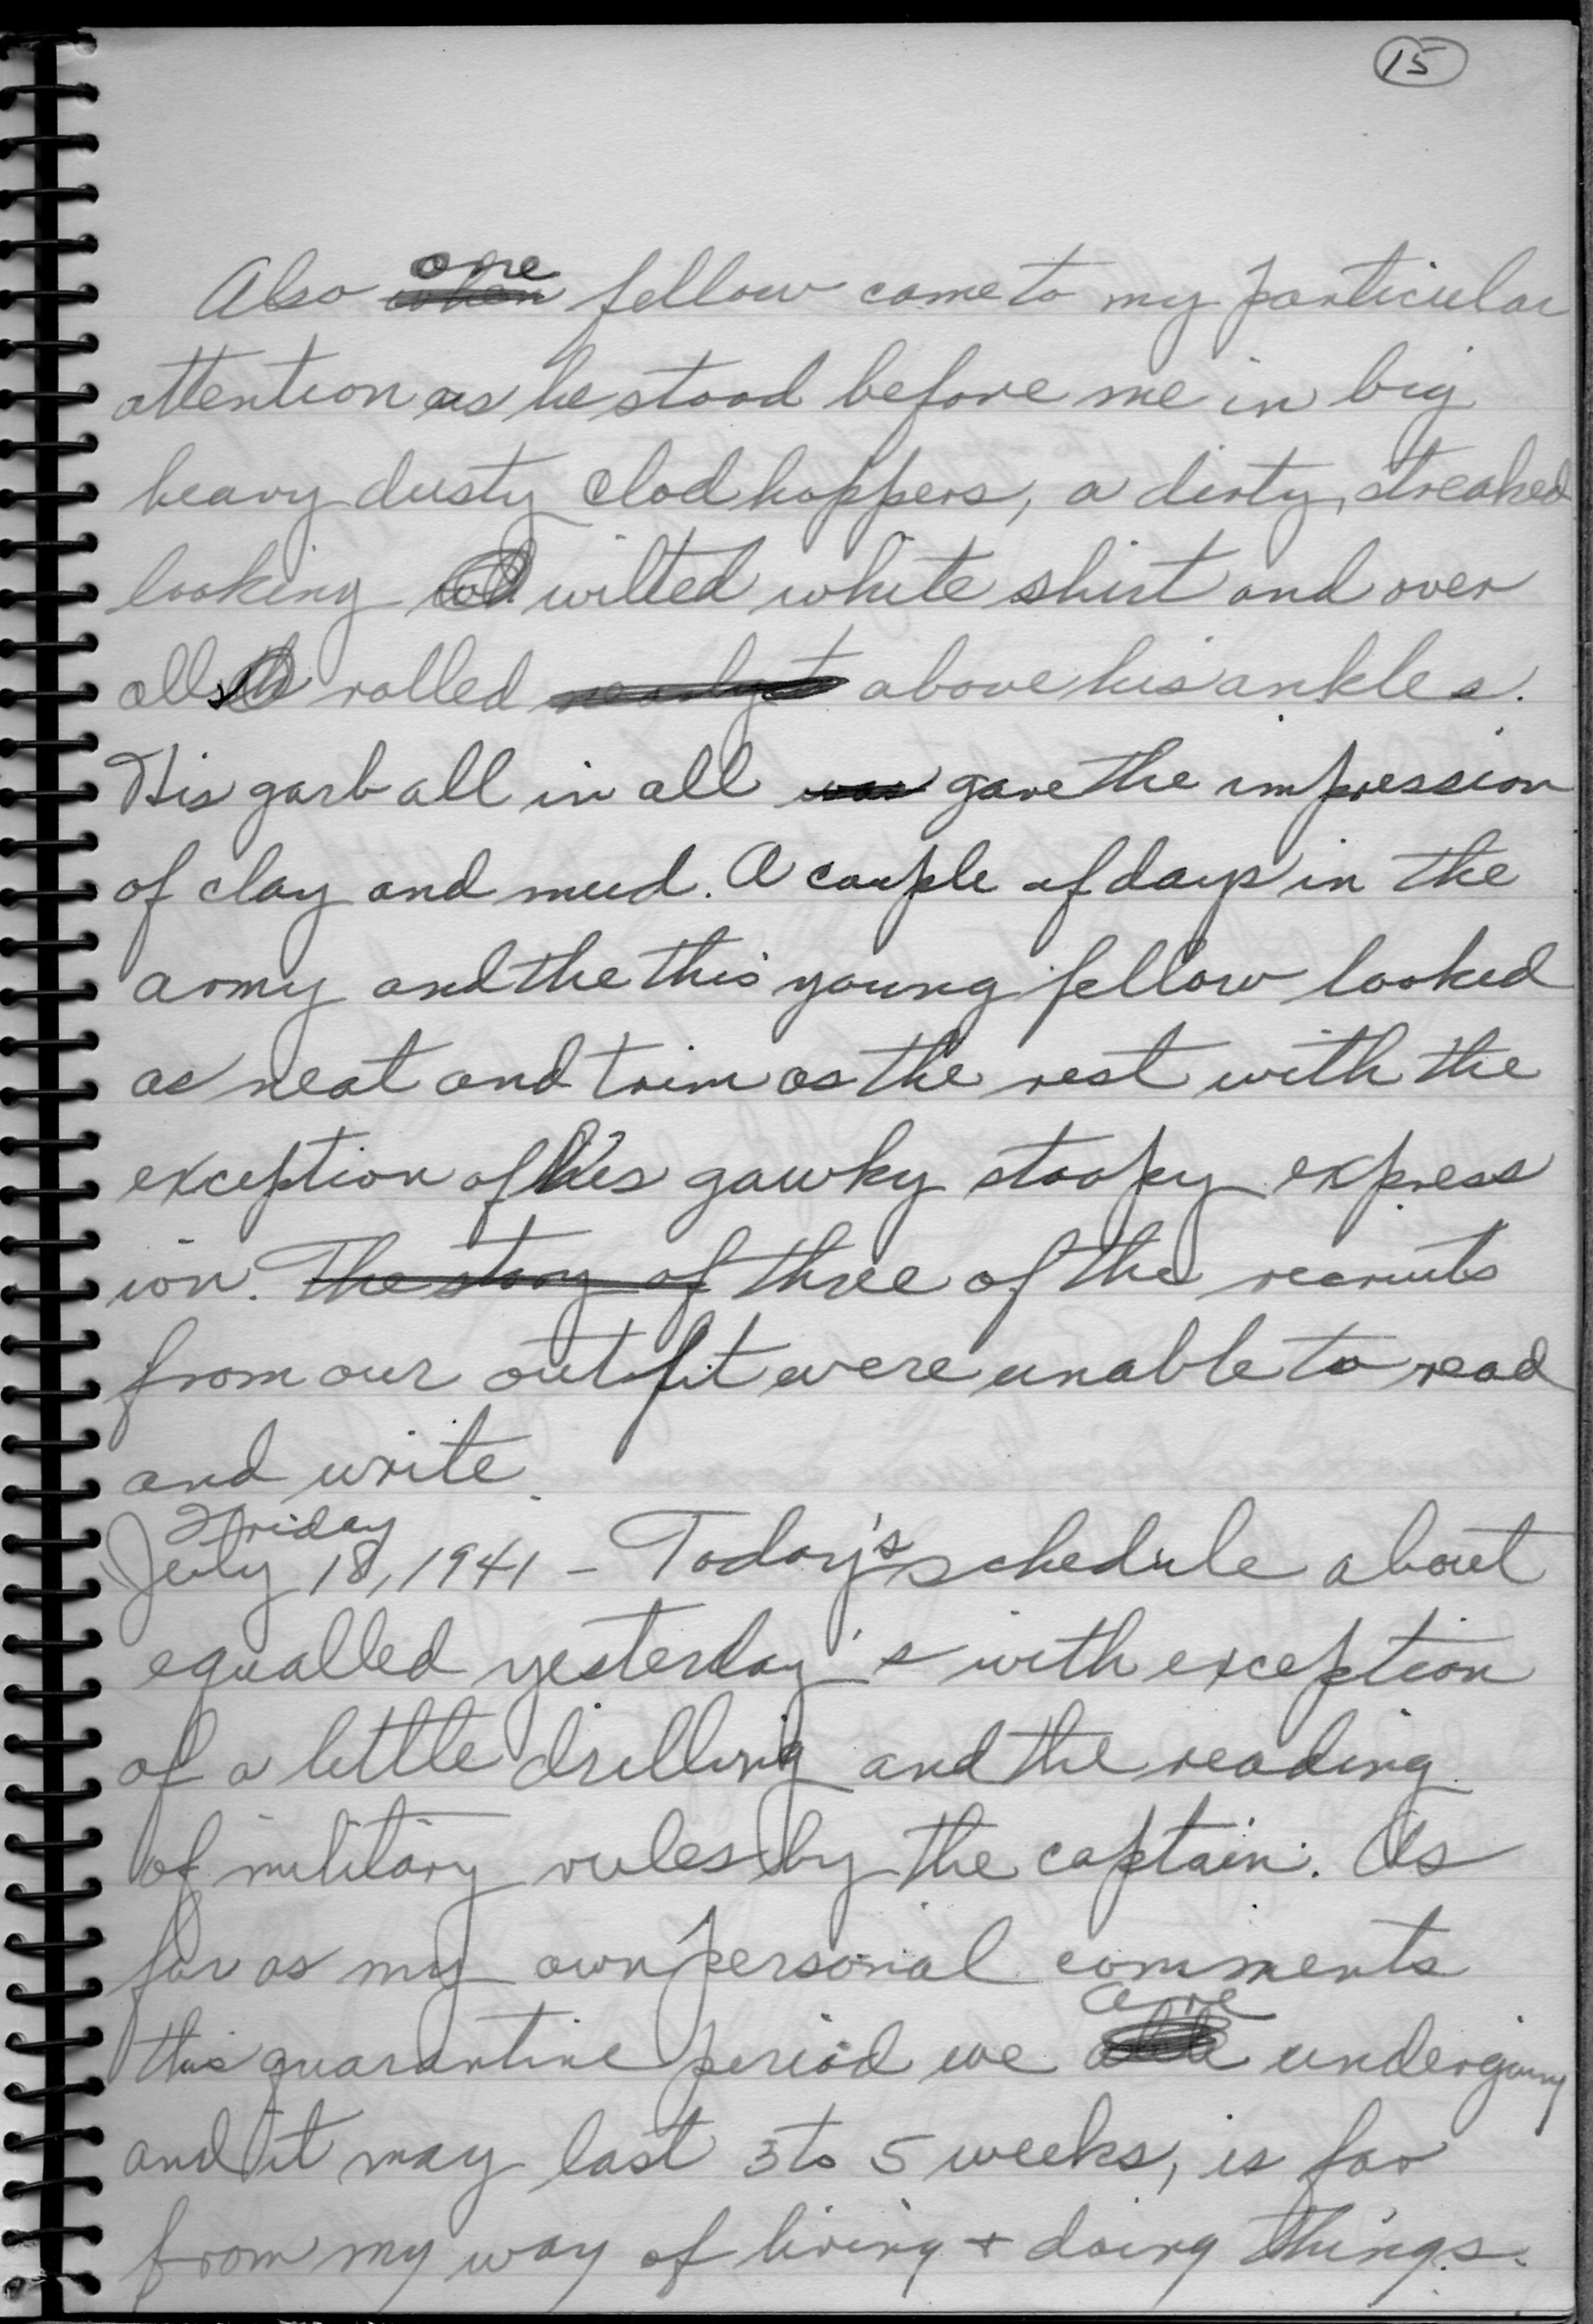 15
Also one fellow came to my particular
attention as he stood before me in big
heavy dusty clodhoppers, a dirty, streaked
looking wilted white shirt and over
alls rolled above his ankles.
His garb all in all gave the impression
of clay and mud. A couple of days in the
army and the this young fellow looked
as neat and trim as the rest with the
exception of his gawky stoopy express
ion. The story of three of the recruits
from our outfit were unable to read
and write.
Friday
July 18, 1941 - Today's schedule about
equalled yesterday's with exception
of a little drilling and the reading
of military rules by the captain. As
far as my own personal comments
this quarantine period we are undergoing
and it may last 3 to 5 weeks, is far
from my way of living + doing things.